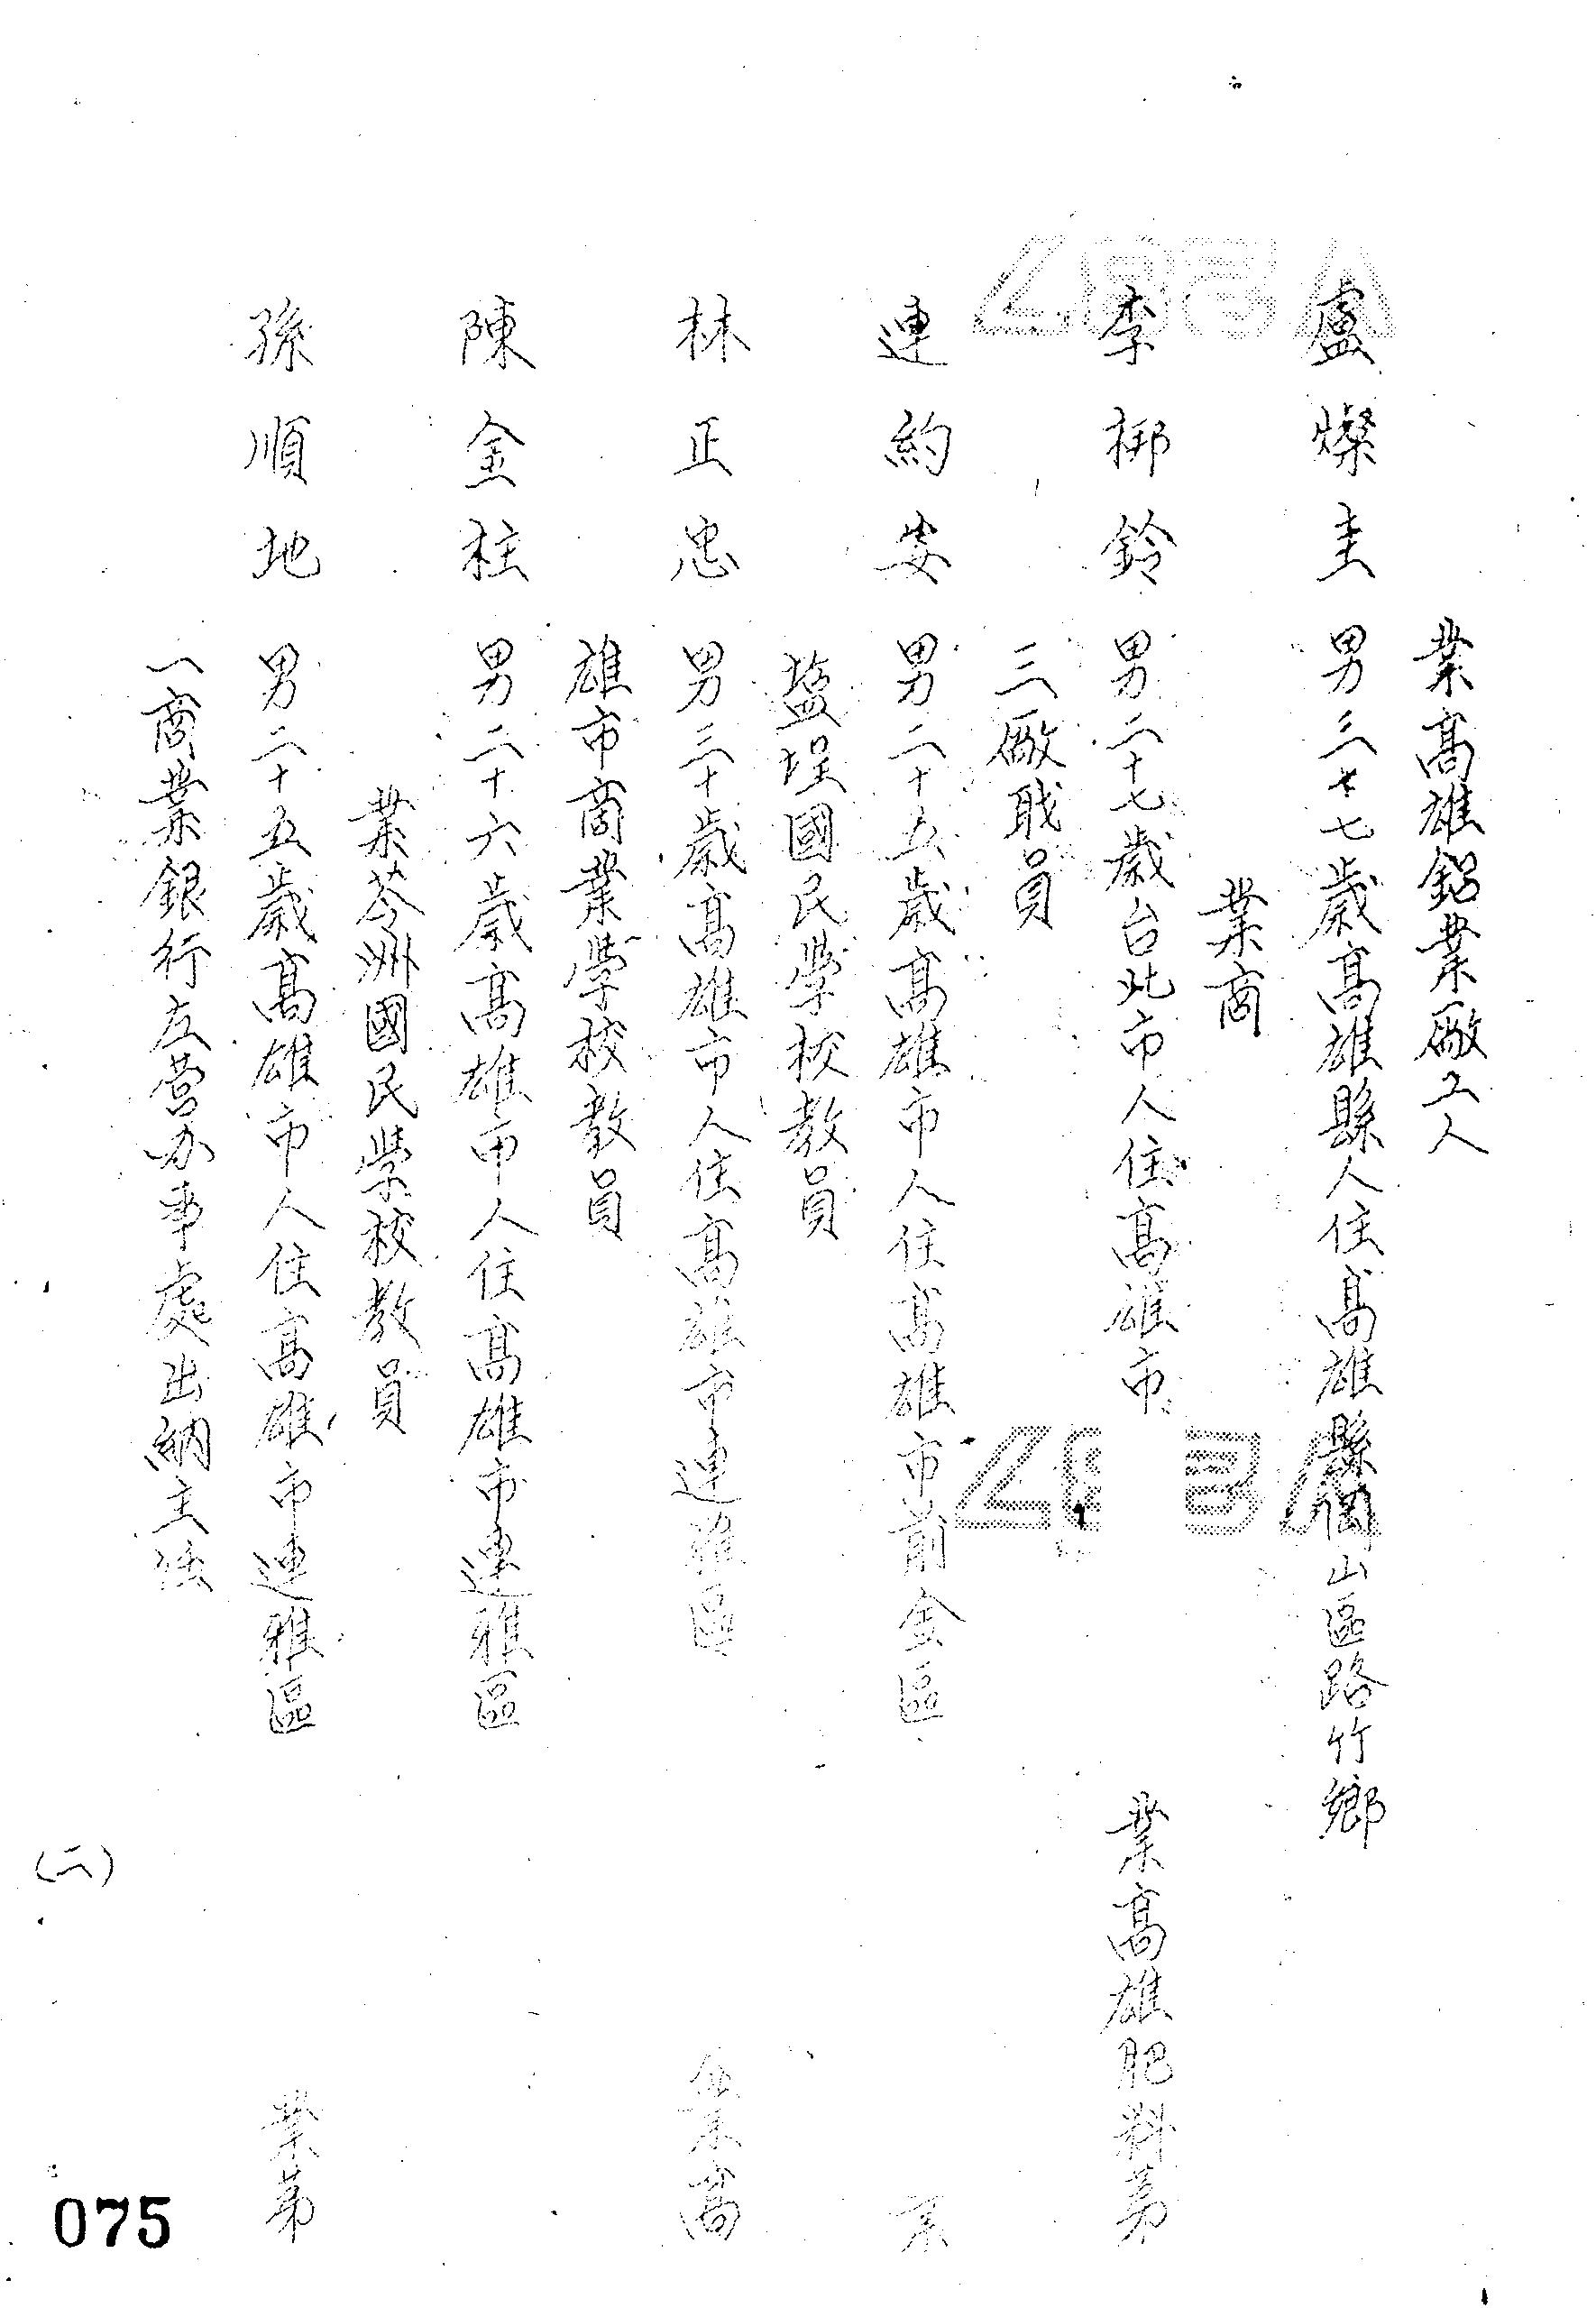 業高雄鋁業廠工人
盧燦圭 男三十七歲高雄縣人住高雄縣岡山區路竹鄉
業商
李梆鈴 男二十七歲台北市人住高雄市 業高雄肥料第
三廠職員
連約安 男二十五歲高雄市人住高雄市前金區 業
盐埕國民學校教員
林正忠 男三十歲高雄市人住高雄市連雅區 業高
雄市商業學校教員
陳金柱 男二十六歲高雄市人住高雄市連雅區
業苓洲國民學校教員
孫順地 男二十五歲高雄市人住高雄市連雅區 業第
一商業銀行左营办事處出納主
(二)
075